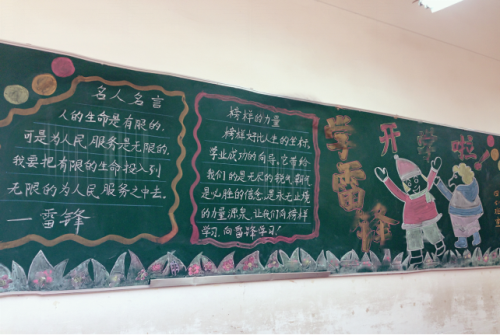 名人名言
人的生命是有限的,
可是为人民服务是无限的,
我要把有限的生命投入到
无限的为人民服务之中去。
——雷锋
榜样的力量
榜样好比人生的坐标,
事业成功的向导,它带给
我们的是无尽的锐气、朝气
是必胜的信念,是永无止境
的力量源泉,让我们向榜样
学习,向雷锋学习!
学雷锋
开学啦